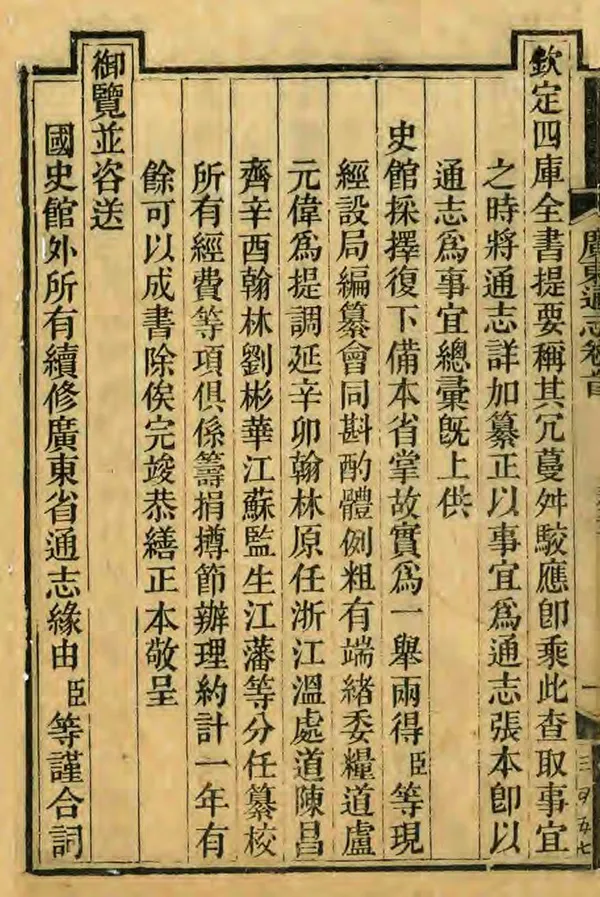 廣東通志卷首
一
欽定四庫全書提要稱其冗蔓舛駁應卽乘此查取事宜
之時將通志詳加纂正以事宜爲通志張本卽以
通志爲事宜總彙旣上供
史館採擇復下備本省掌故實爲一舉兩得臣等現
經設局編纂會同斟酌體例粗有端緒委糧道盧
元偉爲提調延辛卯翰林原任浙江溫處道陳昌
齊辛酉翰林劉彬華江蘇監生江藩等分任纂校
所有經費等項俱係籌捐撙節辦理約計一年有
餘可以成書除俟完竣恭繕正本敬呈
御覽並咨送
國史館外所有續修廣東省通志緣由臣等謹合詞